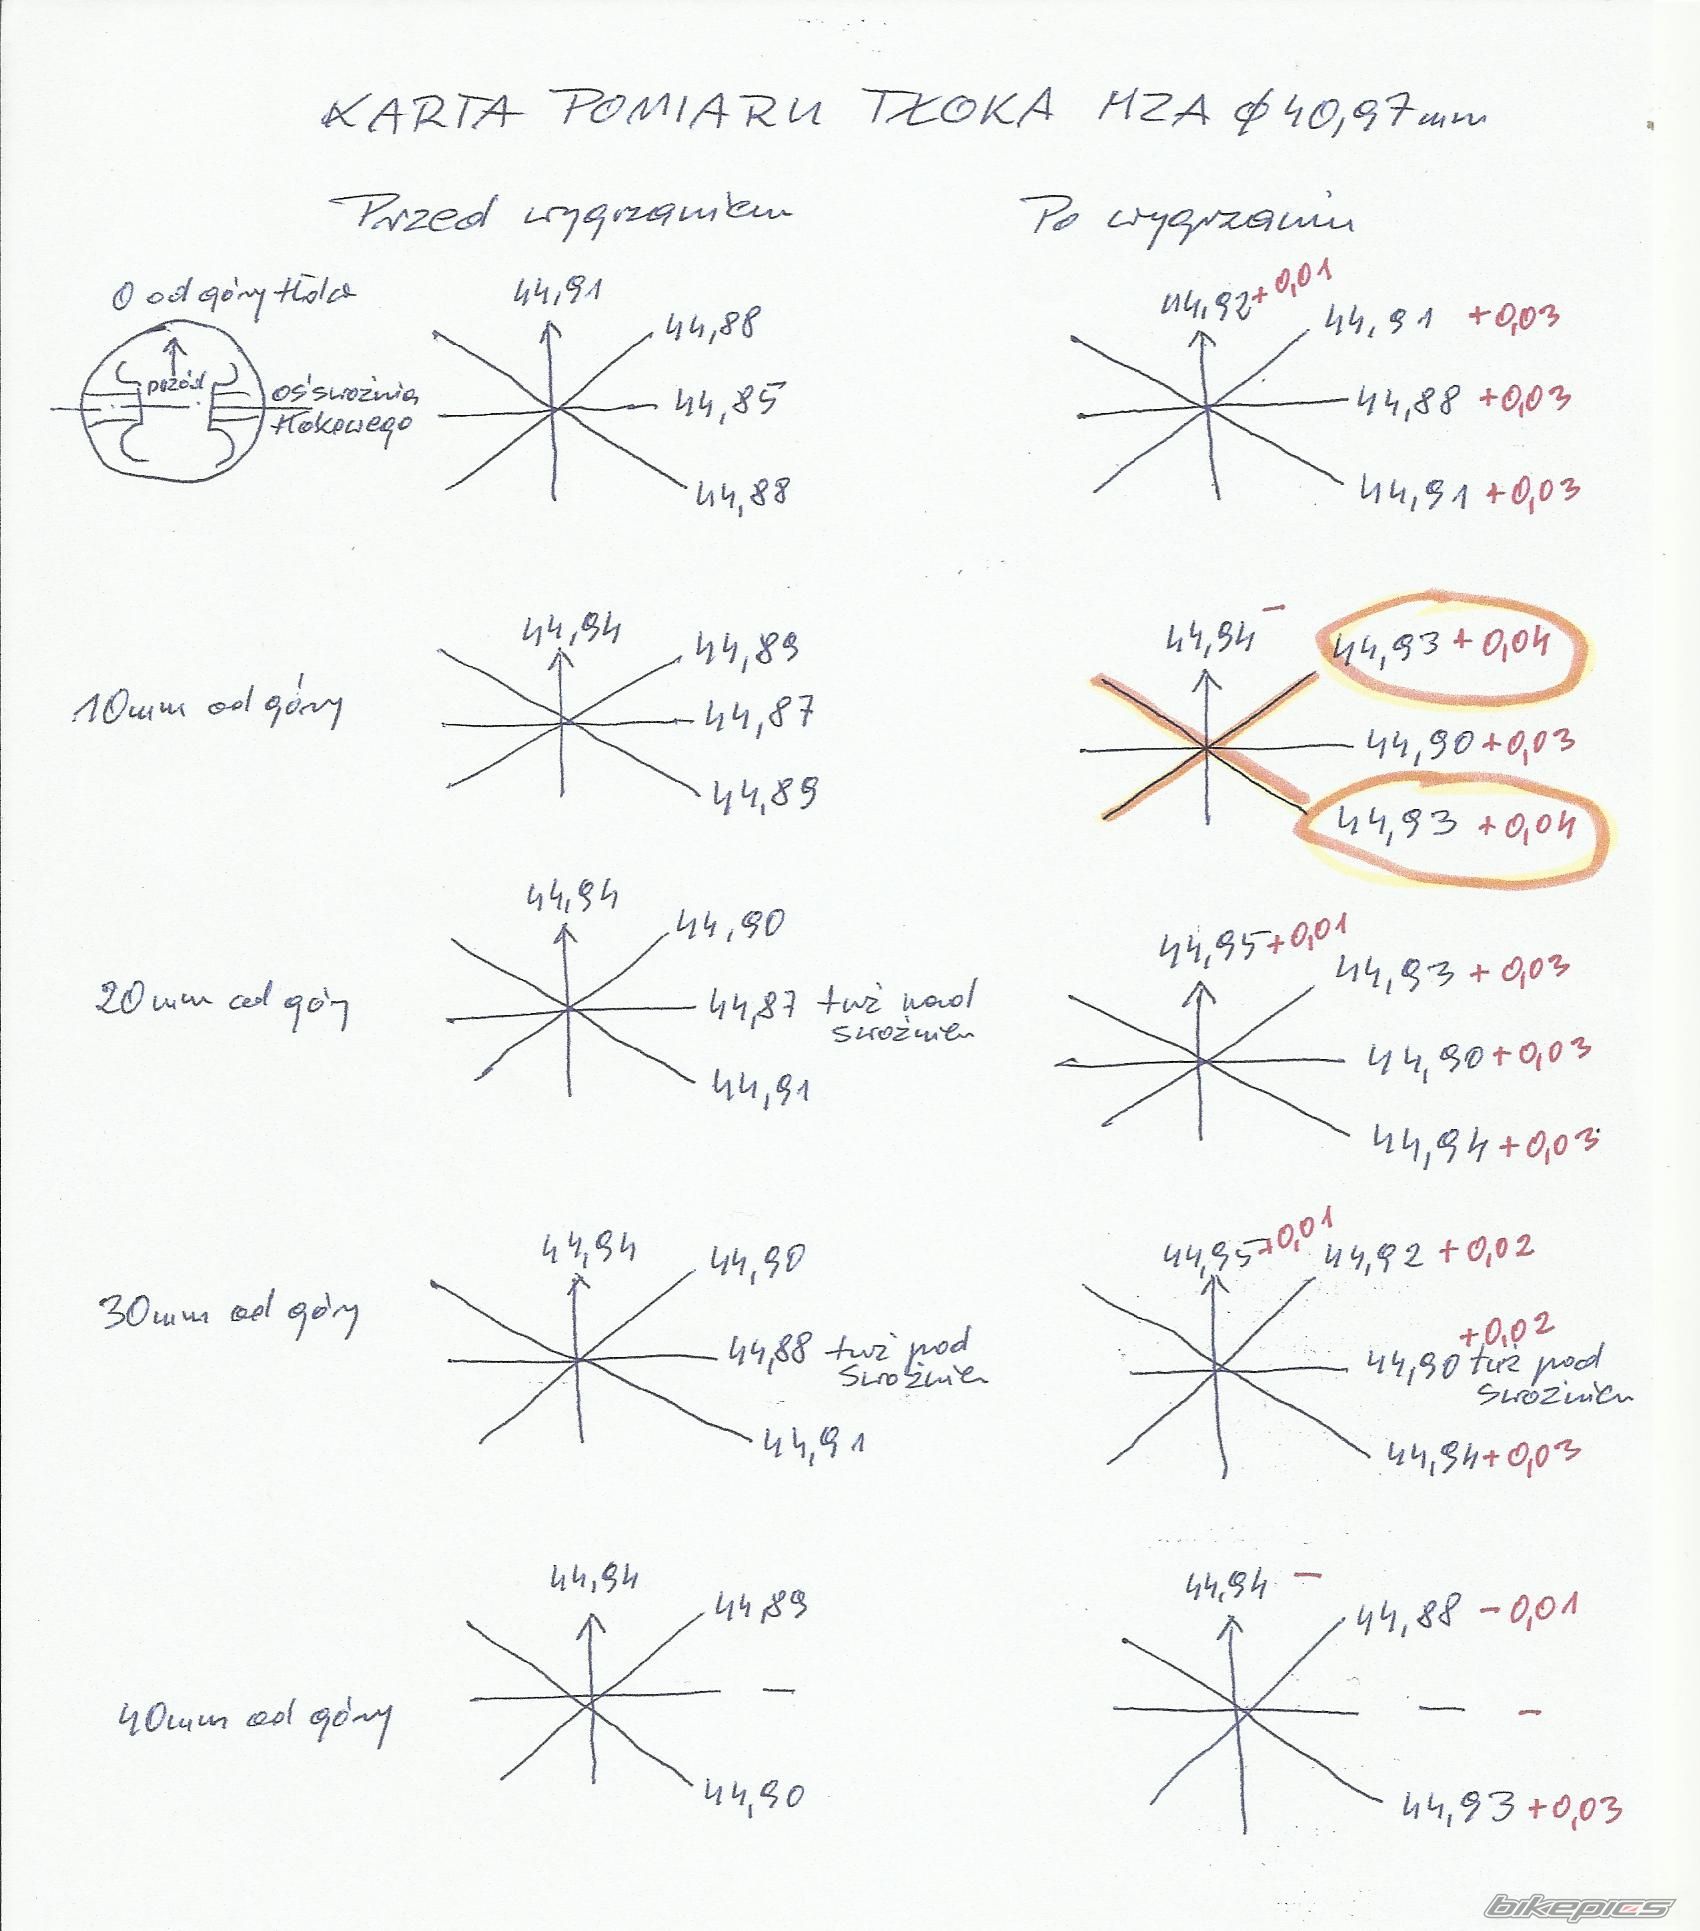 KARTA POMIARU TŁOKA MZA ϕ40,97mm
Przed wygrzaniem
Po wygrzaniu
0 od góry tłoka
przód
oś sworznia
tłokowego
44,91
44,88
44,85
44,88
44,92 +0,01
44,91 +0,03
44,88 +0,03
44,91 +0,03
10mm od góry
44,94
44,89
44,87
44,89
44,94 –
44,93 +0,04
44,90 +0,03
44,93 +0,04
20mm od góry
44,94
44,90
44,87 tuż nad
sworzniem
44,91
44,95 +0,01
44,93 +0,03
44,90 +0,03
44,94 +0,03
30mm od góry
44,94
44,90
44,88 tuż pod
sworzniem
44,91
44,95 +0,01
44,92 +0,02
+0,02
44,90 tuż pod
sworzniem
44,94 +0,03
40mm od góry
44,94
44,89
–
44,90
44,94 –
44,88 –0,01
– –
44,93 +0,03
bikepics